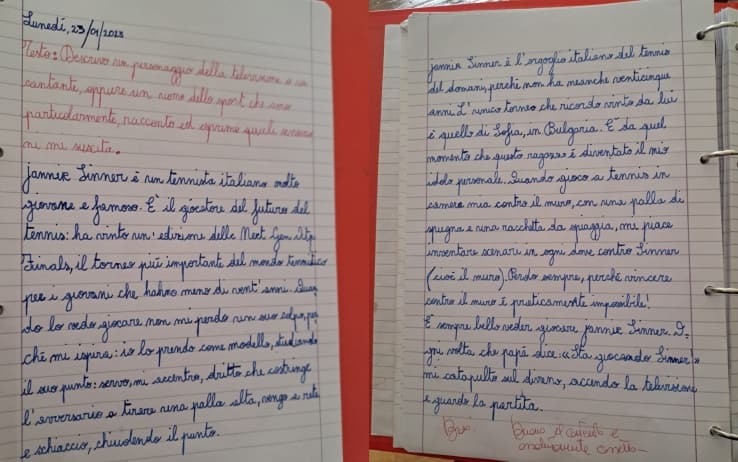 Lunedì, 23/01/2023
Testo: Descrivo un personaggio della televisione o un
cantante, oppure un uomo dello sport che amo
particolarmente, racconto ed esprimo quali emozio
ni mi suscita.
Jannik Sinner è un tennista italiano molto
giovane e famoso. E' il giocatore del futuro del
tennis: ha vinto un'edizione delle Next Gen Atp
Finals, il torneo più importante del mondo tennistico
per i giovani che hanno meno di vent'anni. Quan
do lo vedo giocare non mi perdo un suo colpo, per
chè mi ispira: io lo prendo come modello, studiando
il suo punto: servo, mi accentro, dritto che costringe
l'avversario a tirare una palla alta, vengo a rete
e schiaccio, chiudendo il punto.
Jannik Sinner è l'orgoglio italiano del tennis
del domani, perché non ha neanche venticinque
anni. L'unico torneo che ricordo vinto da lui
è quello di Sofia, in Bulgaria. E' da quel
momento che questo ragazzo è diventato il mio
idolo personale. Quando gioco a tennis in
camera mia contro il muro, con una palla di
spugna e una racchetta da spiaggia, me piace
inventare scenari in ogni dove contro Sinner
(cioè il muro). Perdo sempre, perché vincere
contro il muro è praticamente impossibile!
E' sempre bello veder giocare Jannik Sinner. O=
gni volta che papà dice: «Sta giocando Sinner»
mi catapulto sul divano, accendo la televisione
e guardo la partita.
Buono il contenuto e